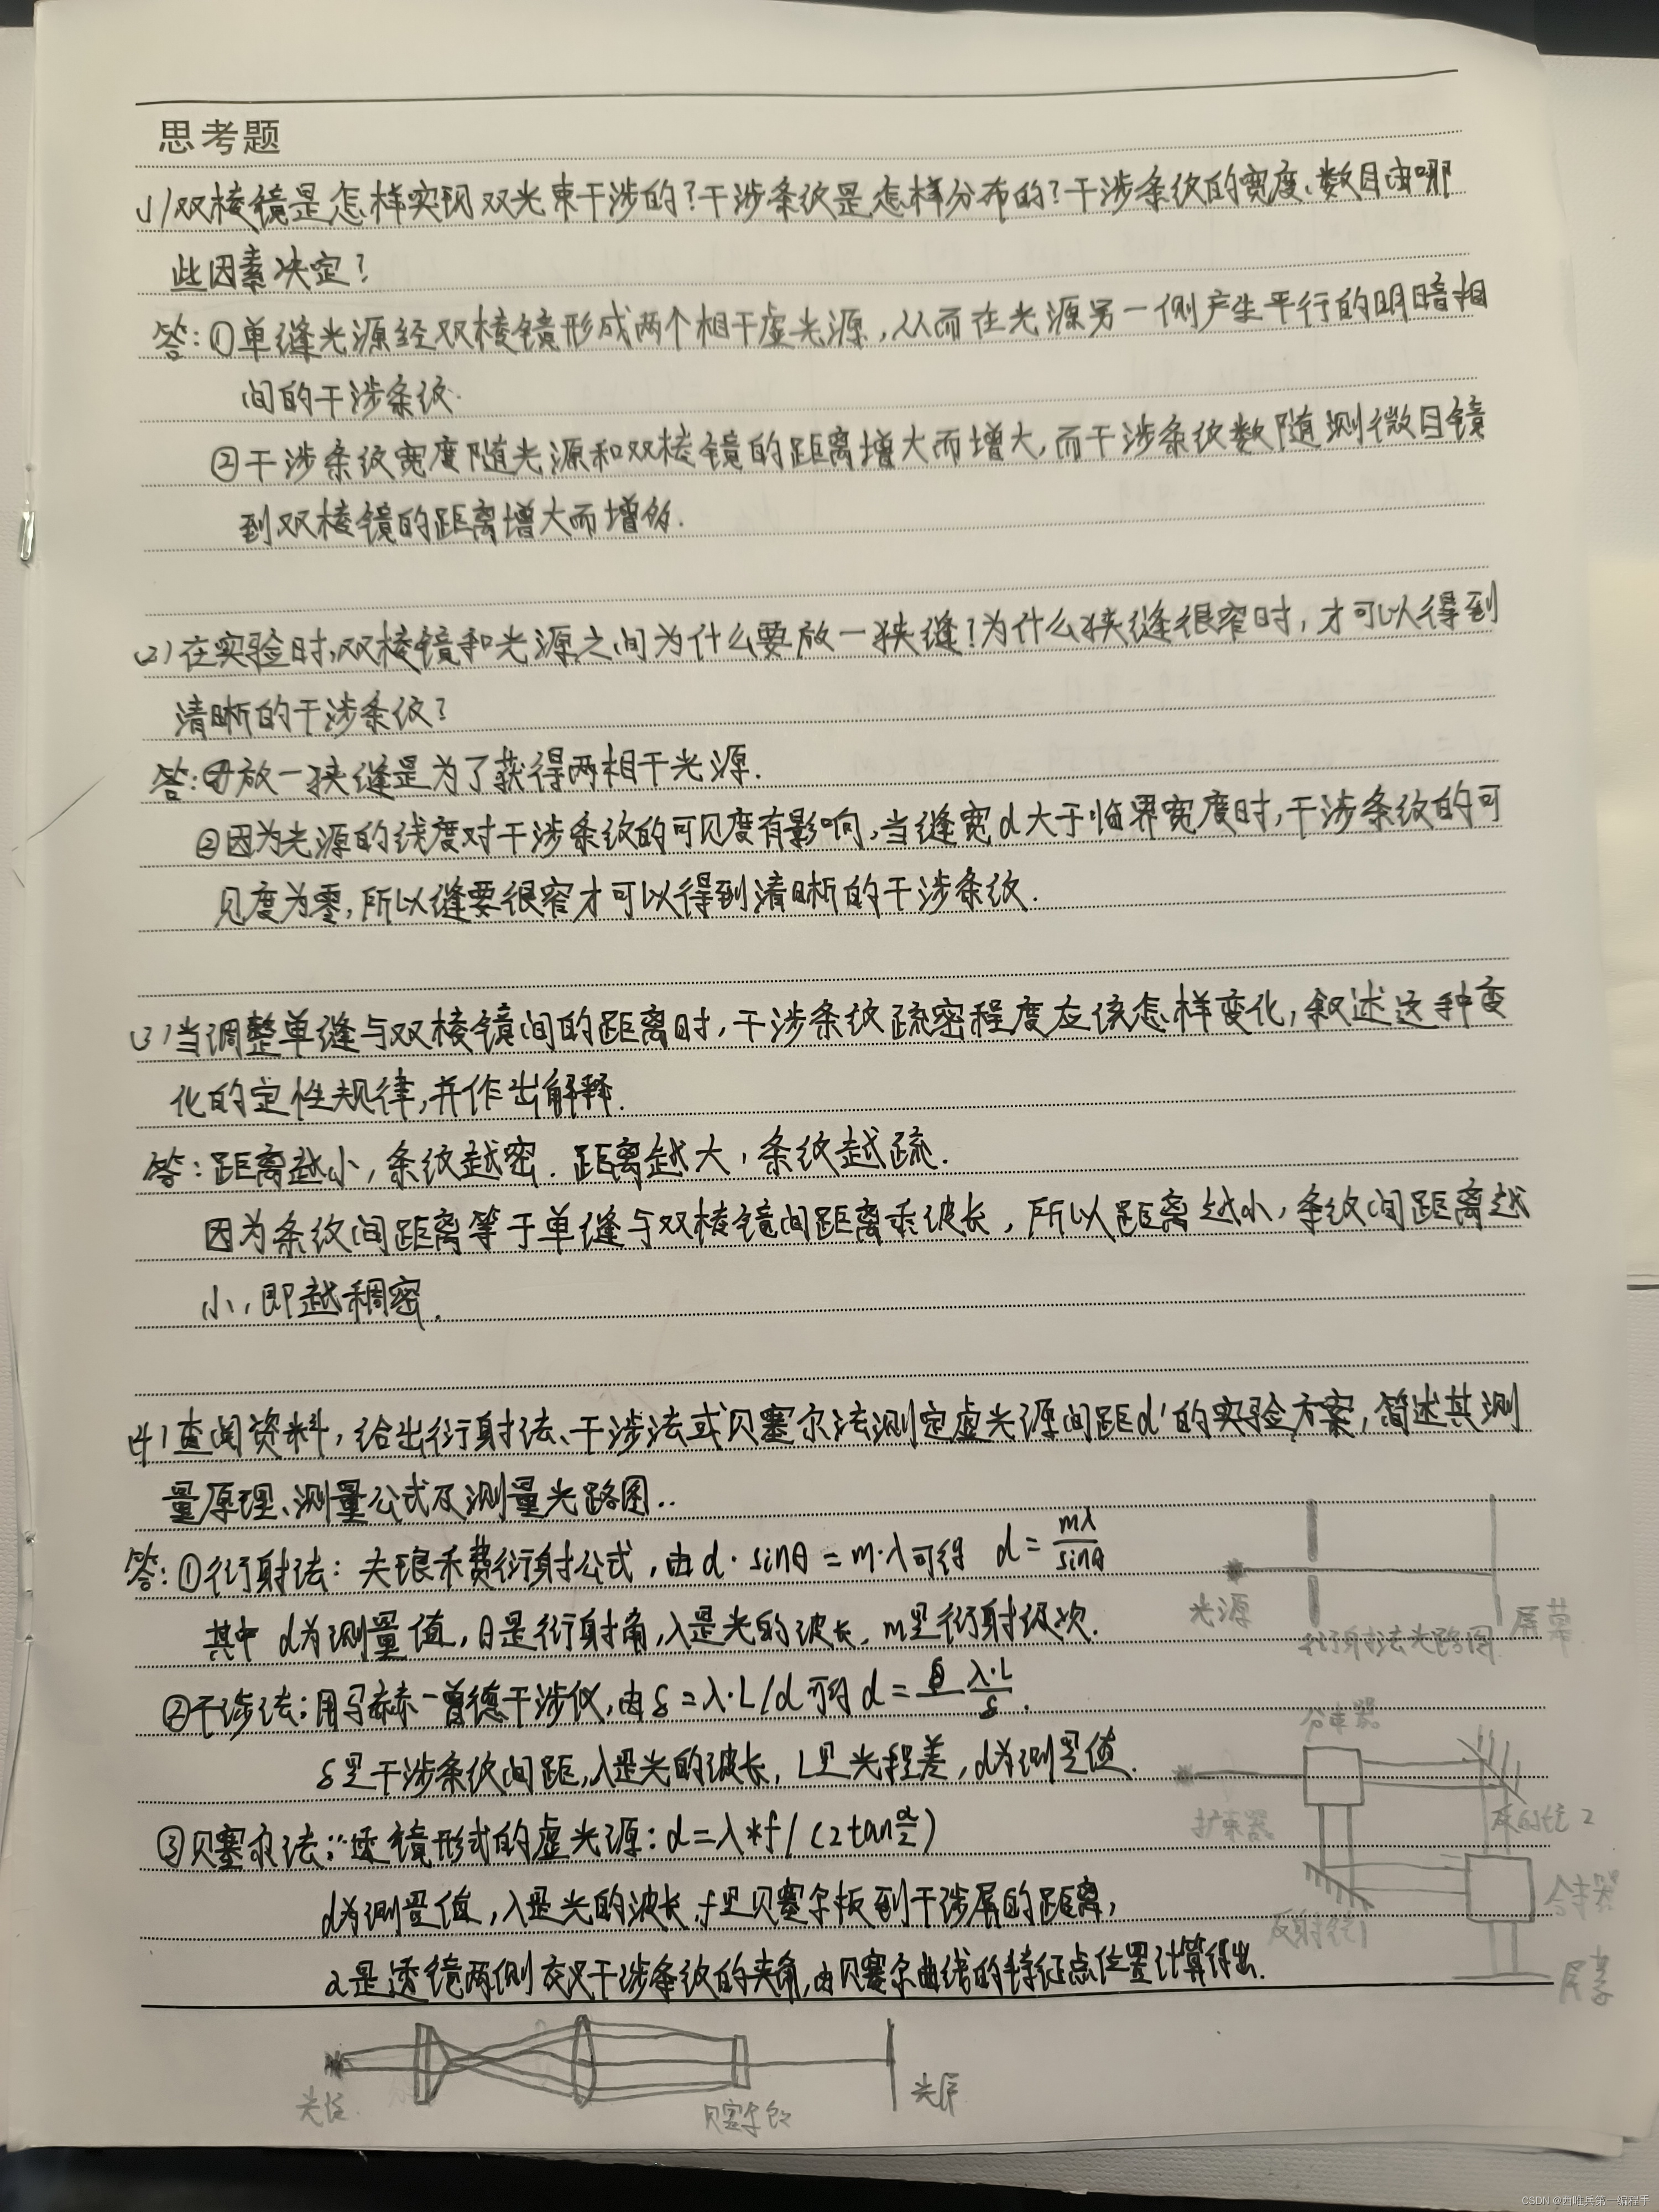 思考题
(1)双棱镜是怎样实现双光束干涉的?干涉条纹是怎样分布的?干涉条纹的宽度、数目由哪
些因素决定?
答:①单缝光源经双棱镜形成两个相干虚光源,从而在光源另一侧产生平行的明暗相
间的干涉条纹.
②干涉条纹宽度随光源和双棱镜的距离增大而增大,而干涉条纹数随测微目镜
到双棱镜的距离增大而增多.
(2)在实验时,双棱镜和光源之间为什么要放一狭缝?为什么狭缝很窄时,才可以得到
清晰的干涉条纹?
答:①放一狭缝是为了获得两相干光源.
②因为光源的线度对干涉条纹的可见度有影响,当缝宽d大于临界宽度时,干涉条纹的可
见度为零,所以缝要很窄才可以得到清晰的干涉条纹.
(3)当调整单缝与双棱镜间的距离时,干涉条纹疏密程度应该怎样变化,叙述这种变
化的定性规律,并作出解释.
答:距离越小,条纹越密.距离越大,条纹越疏.
因为条纹间距离等于单缝与双棱镜间距离乘波长,所以距离越小,条纹间距离越
小,即越稠密.
(4)查阅资料,给出衍射法、干涉法或贝塞尔法测定虚光源间距d'的实验方案,简述其测
量原理、测量公式及测量光路图..
答:①衍射法:夫琅禾费衍射公式,由d·sinθ=m·λ可得 d=mλ/sinθ
其中d为测量值,θ是衍射角,λ是光的波长,m是衍射级次.
光源
衍射法光路图
屏幕
②干涉法:用马赫-曾德干涉仪,由δ=λ·L/d可得d=λ·L/δ.
δ是干涉条纹间距,λ是光的波长,L是光程差,d为测量值.
分束器
扩束器
反射镜2
③贝塞尔法:透镜形式的虚光源:d=λ*f/(2tanα/2)
d为测量值,λ是光的波长,f是贝塞尔板到干涉屏的距离,
α是透镜两侧交叉干涉条纹的夹角,由贝塞尔曲线的特征点位置计算得出.
合束器
反射镜1
屏幕
光屏
CSDN @西唯兵第一编程手